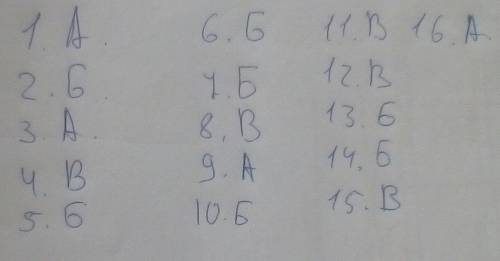 1. А.
2. Б.
3. А.
4. В
5. Б
6. Б
7. Б
8. В
9. А
10. Б
11. В
12. В
13. Б
14. Б
15. В
16. А.